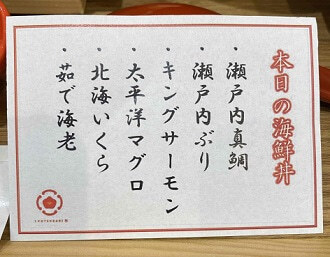 本日の海鮮丼
・瀬戸内真鯛
・瀬戸内ぶり
・キングサーモン
・太平洋マグロ
・北海いくら
・茹で海老